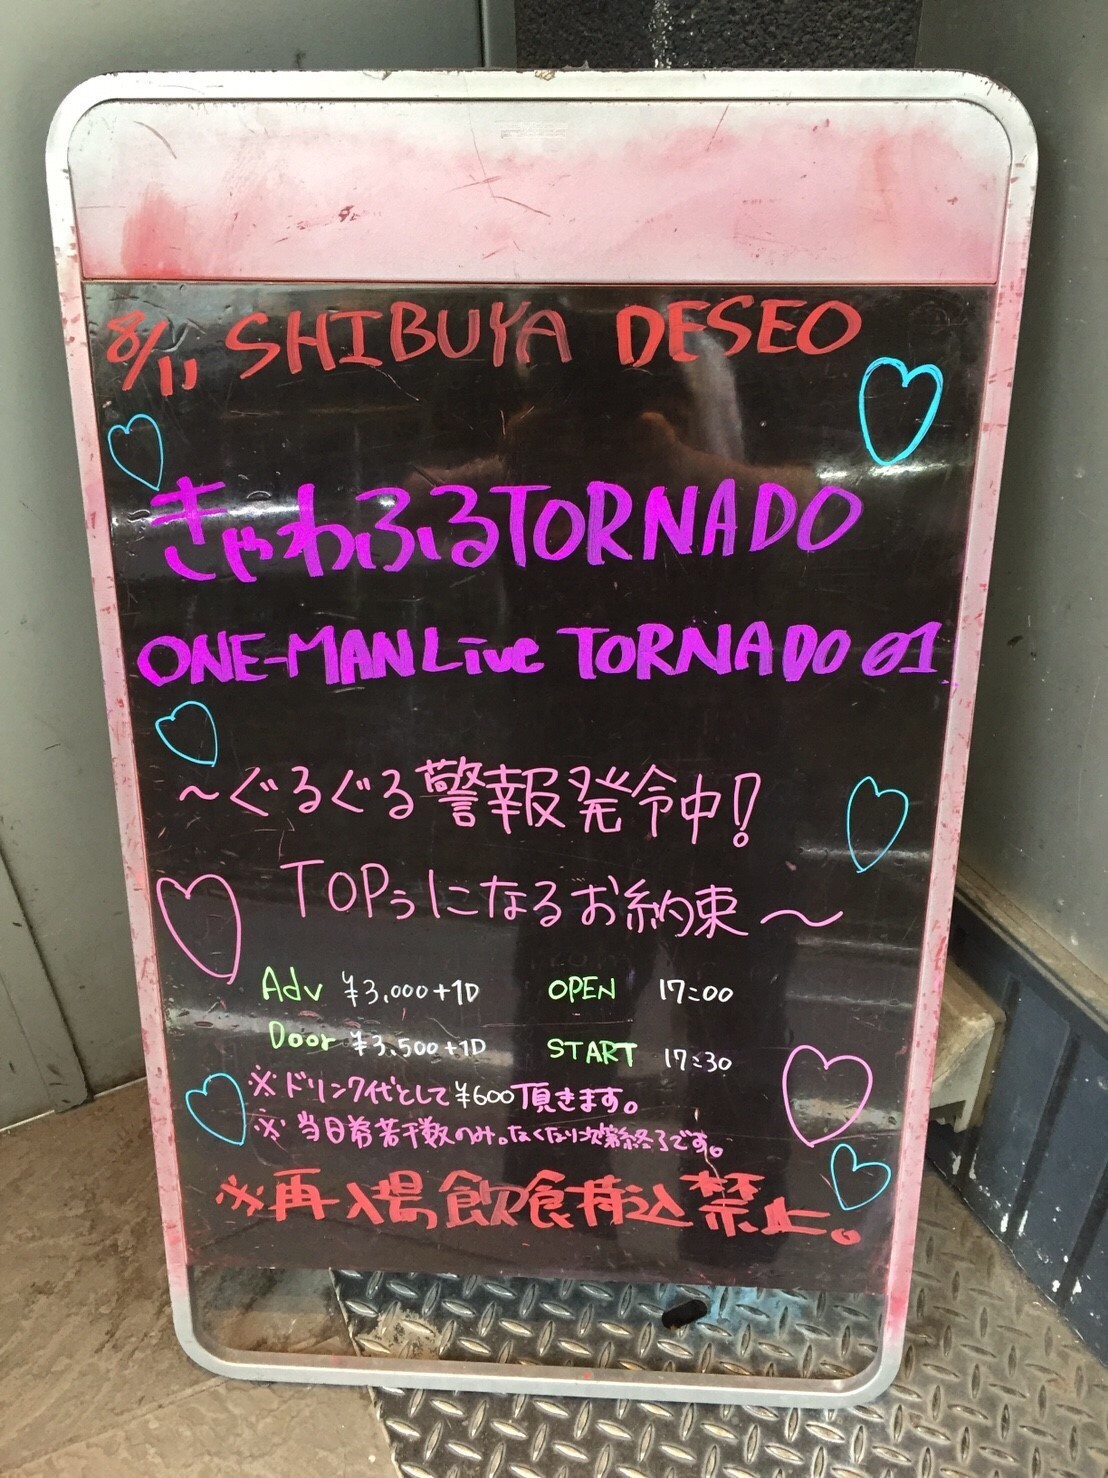 8/11 SHIBUYA DESEO
きゃわふるTORNADO
ONE-MAN Live TORNADO 01
～ぐるぐる警報発令中!
TOPぅになるお約束～
Adv ¥3,000+1D OPEN 17:00
Door ¥3,500+1D START 17:30
※ドリンク代として¥600頂きます。
※当日券若干数のみ。なくなり次第終了です。
※再入場飲食持込禁止。